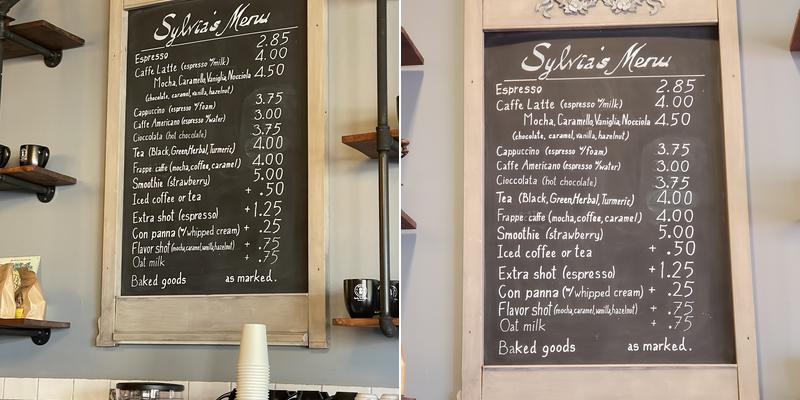 Sylvia's Menu
Espresso 2.85
Caffe Latte (espresso w/milk) 4.00
Mocha, Caramello, Vaniglia, Nocciola 4.50
(chocolate, caramel, vanilla, hazelnut)
Cappuccino (espresso w/foam) 3.75
Caffe Americano (espresso w/water) 3.00
Cioccolata (hot chocolate) 3.75
Tea (Black, Green, Herbal, Turmeric) 4.00
Frappe: caffe (mocha, coffee, caramel) 4.00
Smoothie (strawberry) 5.00
Iced coffee or tea + .50
Extra shot (espresso) +1.25
Con panna (w/whipped cream) + .25
Flavor shot (mocha, caramel, vanilla, hazelnut) + .75
Oat milk + .75
Baked goods as marked.
Sylvia's Menu
Espresso 2.85
Caffe Latte (espresso w/milk) 4.00
Mocha, Caramello, Vaniglia, Nocciola 4.50
(chocolate, caramel, vanilla, hazelnut)
Cappuccino (espresso w/foam) 3.75
Caffe Americano (espresso w/water) 3.00
Cioccolata (hot chocolate) 3.75
Tea (Black, Green, Herbal, Turmeric) 4.00
Frappe: caffe (mocha, coffee, caramel) 4.00
Smoothie (strawberry) 5.00
Iced coffee or tea + .50
Extra shot (espresso) +1.25
Con panna (w/whipped cream) + .25
Flavor shot (mocha, caramel, vanilla, hazelnut) + .75
Oat milk + .75
Baked goods as marked.